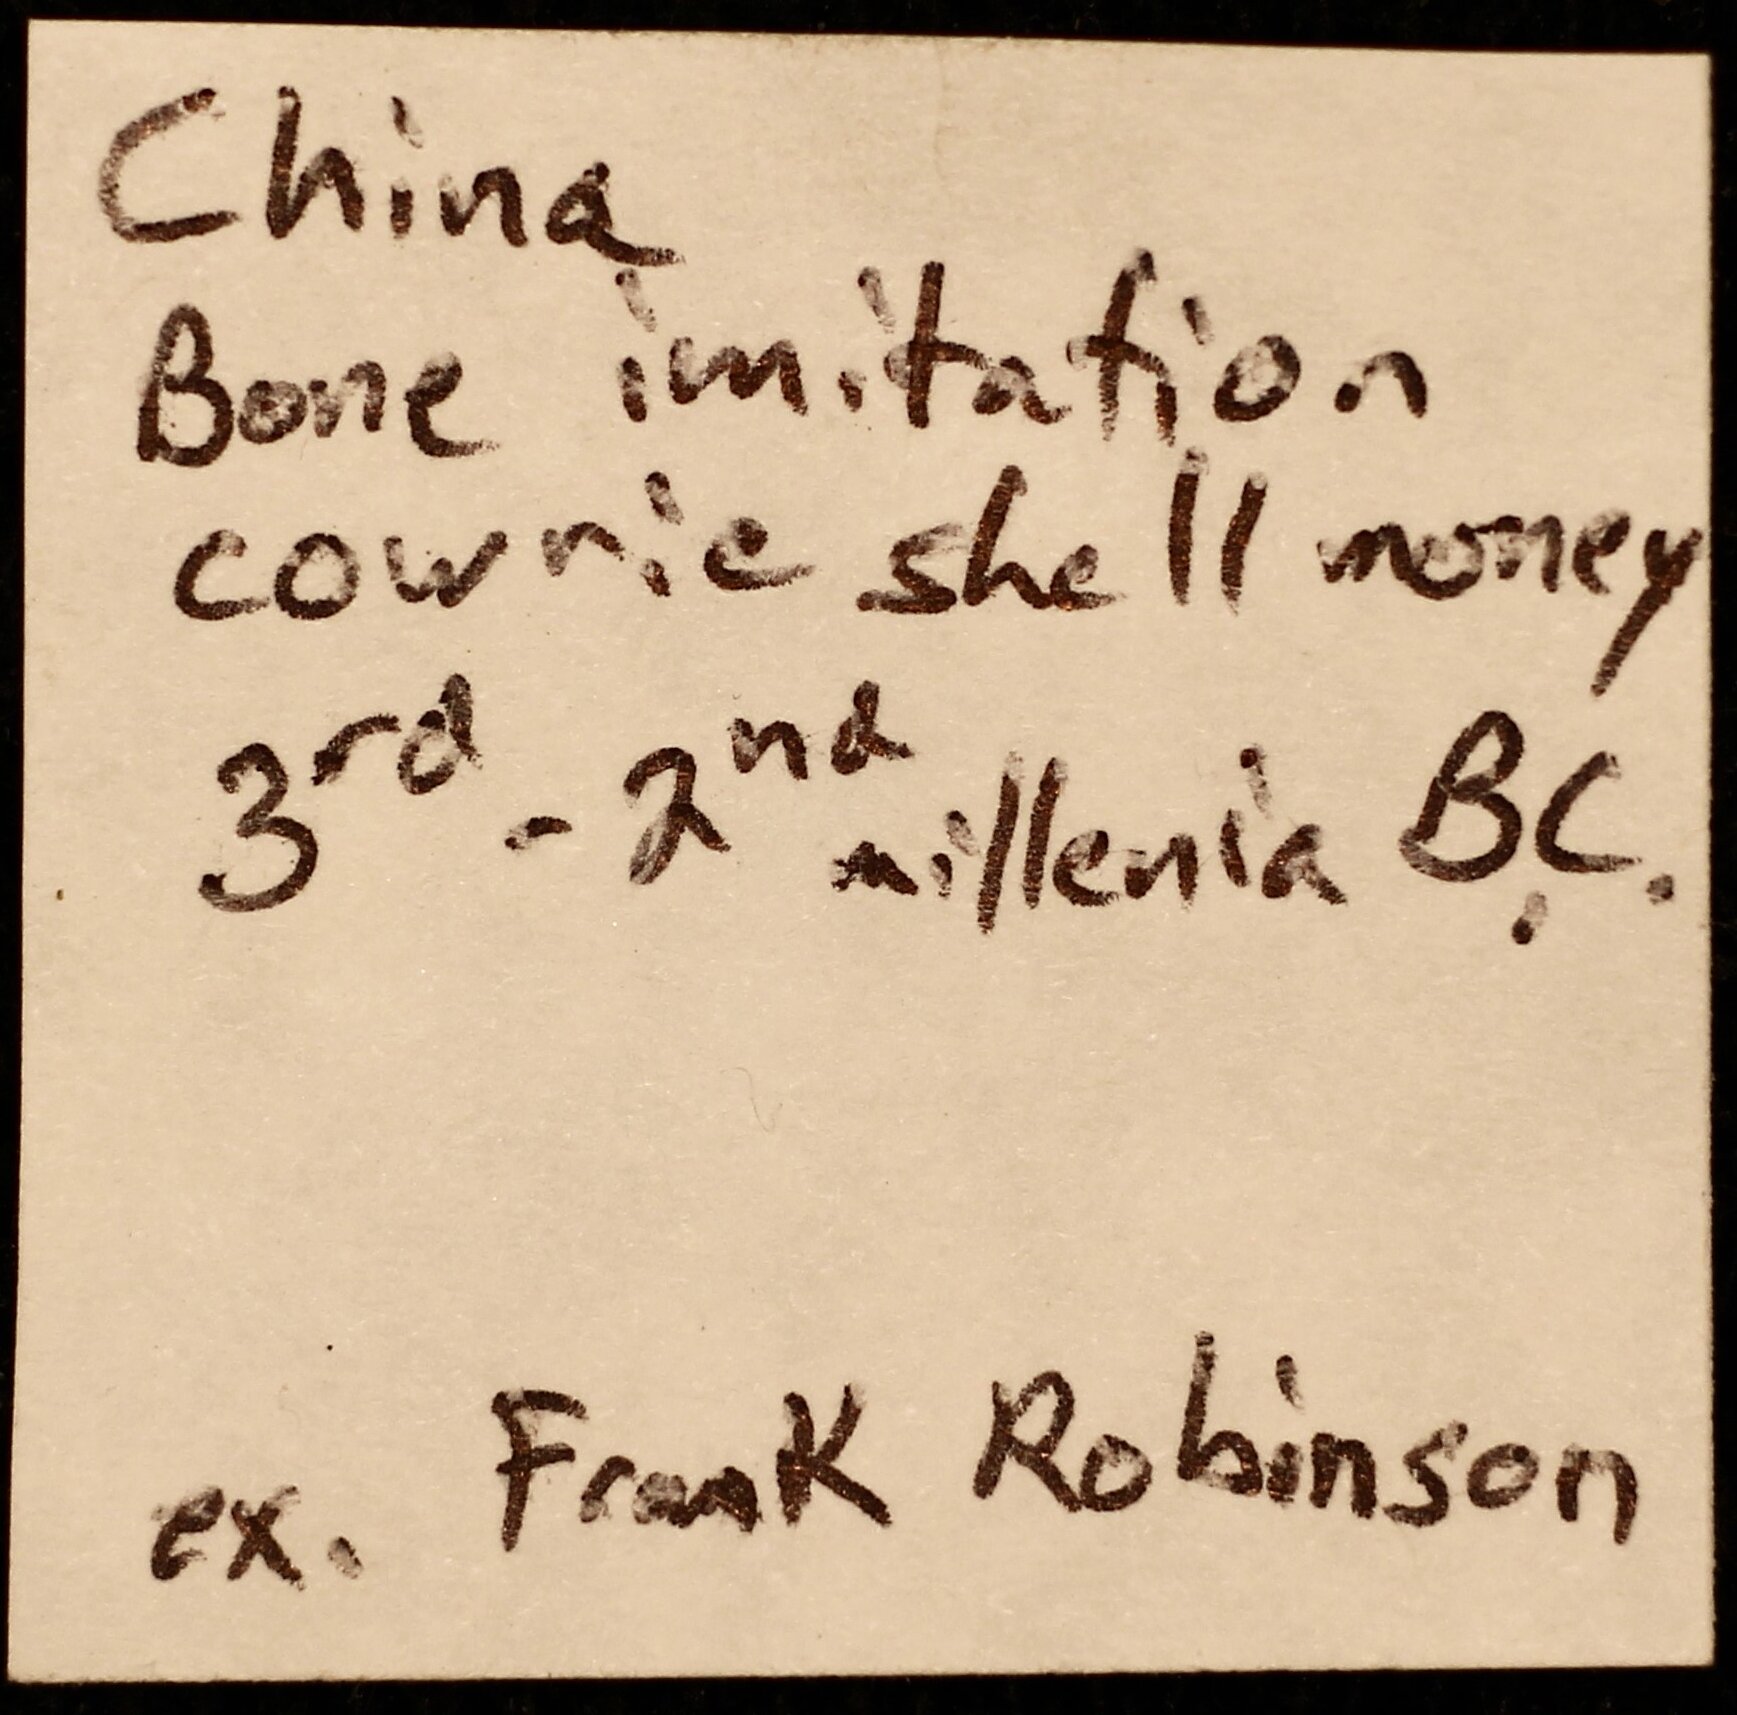 China
Bone imitation
cowrie shell money
3rd - 2nd millenia B.C.
ex. Frank Robinson